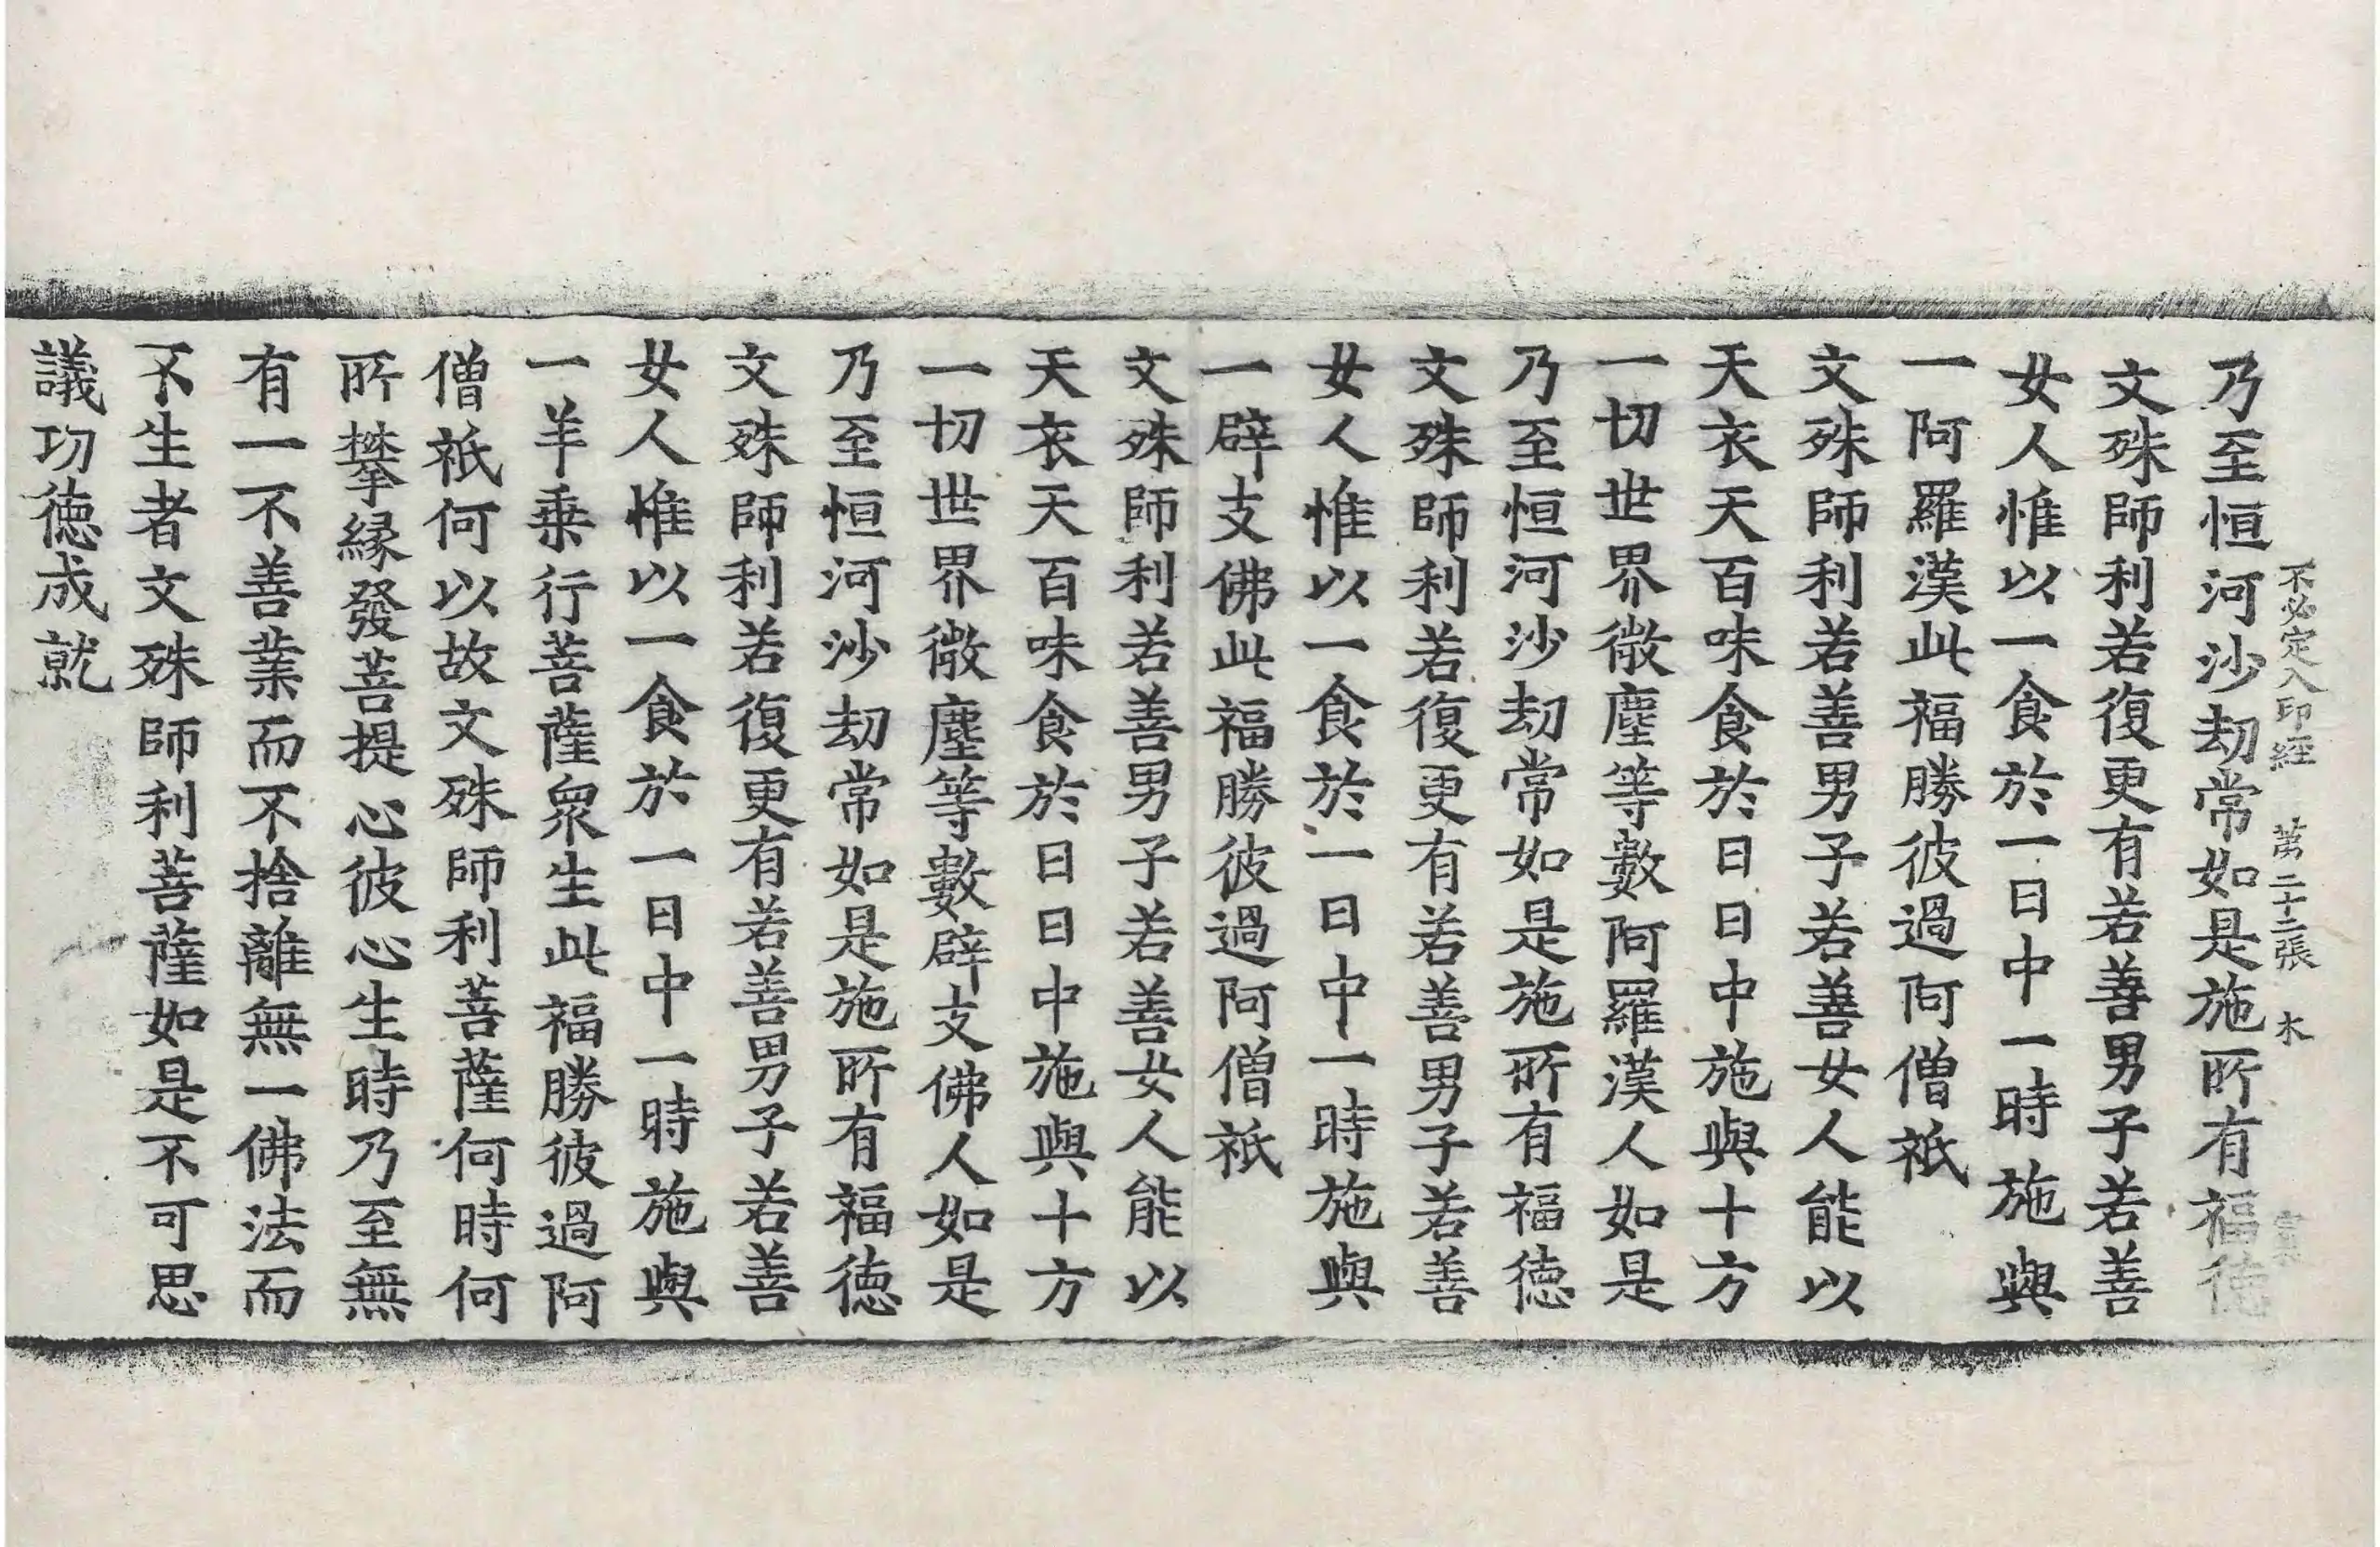 不必定入印經　第二十三張　木
乃至恒河沙劫常如是施所有福德
文殊師利若復更有若善男子若善
女人惟以一食於一日中一時施與
一阿羅漢此福勝彼過阿僧祇
文殊師利若善男子若善女人能以
天衣天百味食於日日中施與十方
一切世界微塵等數阿羅漢人如是
乃至恒河沙劫常如是施所有福德
文殊師利若復更有若善男子若善
女人惟以一食於一日中一時施與
一辟支佛此福勝彼過阿僧祇
文殊師利若善男子若善女人能以
天衣天百味食於日日中施與十方
一切世界微塵等數辟支佛人如是
乃至恒河沙劫常如是施所有福德
文殊師利若復更有若善男子若善
女人惟以一食於一日中一時施與
一羊乗行菩薩衆生此福勝彼過阿
僧祇何以故文殊師利菩薩何時何
所攀縁發菩提心彼心生時乃至無
有一不善業而不捨離無一佛法而
不生者文殊師利菩薩如是不可思
議功德成就